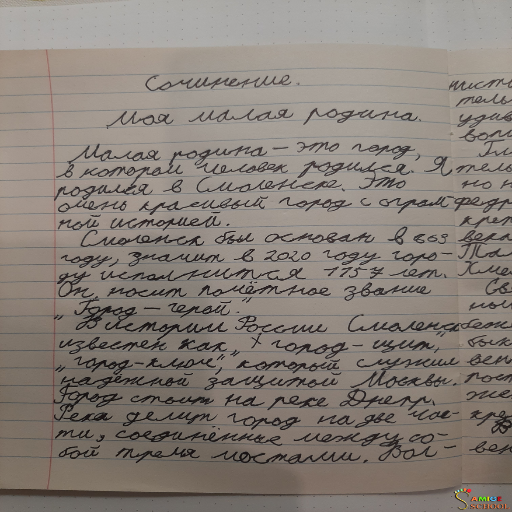 Сочинение.
Моя малая родина.
Малая родина – это город,
в котором человек родился. Я
родился в Смоленске. Это
очень красивый город с огром
ной историей.
Смоленск был основан в 863
году, значит в 2020 году горо-
ду исполнится 1157 лет.
Он носит почётное звание
„Город – герой."
В истории России Смоленск
известен как „город-щит,"
„город-ключ", который служил
надёжной защитой Москвы.
Город стоит на реке Днепр.
Река делит город на две час-
ти, соединённые между со-
бой тремя мостами. Вол-
AMICE SCHOOL